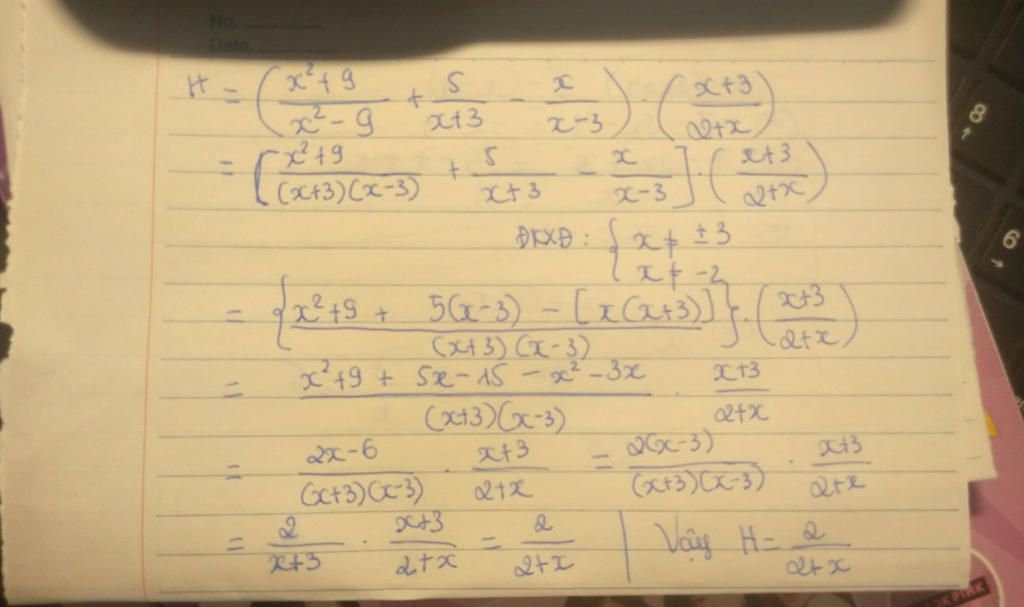 No. ............
Date. ............
H = ( (x²+9)/(x²-9) + 5/(x+3) - x/(x-3) ) · ( (x+3)/(2+x) )
= [ (x²+9)/((x+3)(x-3)) + 5/(x+3) - x/(x-3) ] · ( (x+3)/(2+x) )
ĐKXĐ: { x ≠ ±3
x ≠ -2
= { (x²+9 + 5(x-3) - [x(x+3)])/((x+3)(x-3)) } · ( (x+3)/(2+x) )
= (x²+9 + 5x-15 - x²-3x)/((x+3)(x-3)) · (x+3)/(2+x)
= (2x-6)/((x+3)(x-3)) · (x+3)/(2+x) = 2(x-3)/((x+3)(x-3)) · (x+3)/(2+x)
= 2/(x+3) · (x+3)/(2+x) = 2/(2+x) | Vậy H = 2/(2+x)
8
6